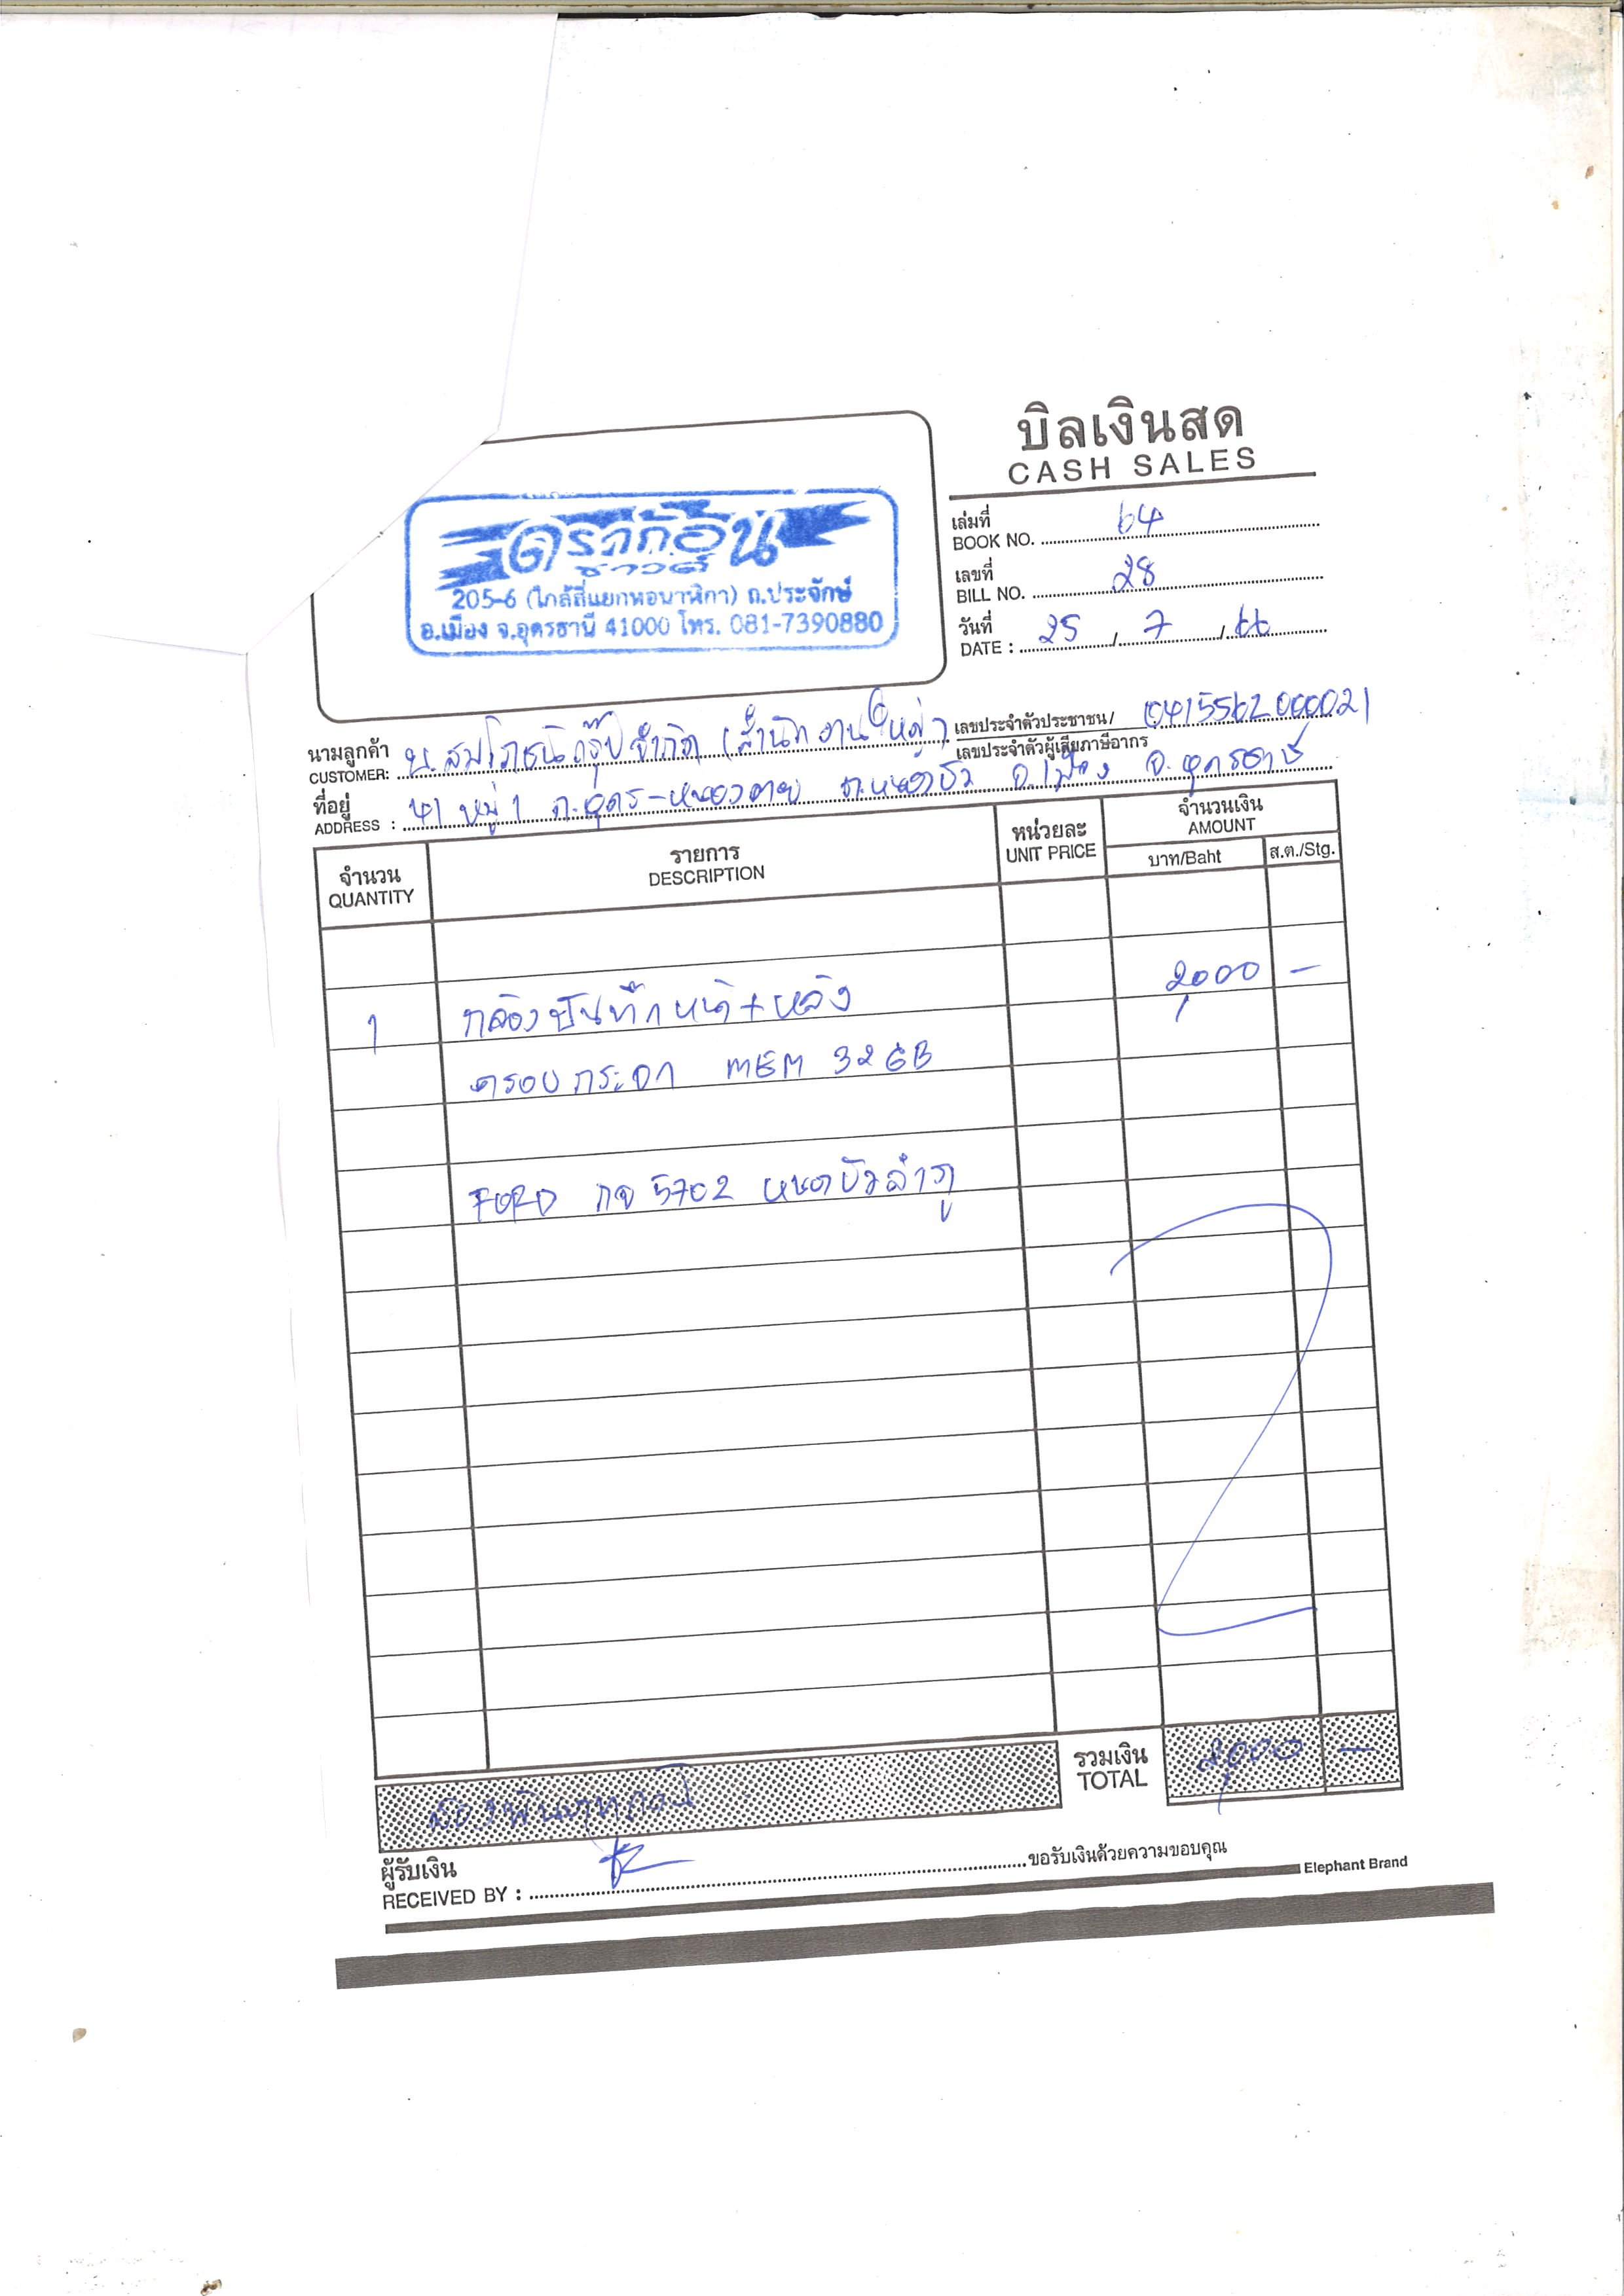 บิลเงินสด
CASH SALES
ดราก้อน
ซาวด์
205-6 (ใกล้สี่แยกหอนาฬิกา) ถ.ประจักษ์
อ.เมือง จ.อุดรธานี 41000 โทร. 081-7390880
เล่มที่
BOOK NO. 64
เลขที่
BILL NO. 28
วันที่
DATE : 25 / 7 / 66
นามลูกค้า
CUSTOMER: บ.สมโภชน์กรุ๊ป จำกัด (สำนักงานใหญ่) เลขประจำตัวประชาชน/ 0415562000021
เลขประจำตัวผู้เสียภาษีอากร
ที่อยู่
ADDRESS : หมู่ 1 ถ.อุดร-หนองคาย ต.หนองบัว อ.เมือง จ.อุดรธานี
จำนวน
QUANTITY
รายการ
DESCRIPTION
หน่วยละ
UNIT PRICE
จำนวนเงิน
AMOUNT
บาท/Baht
ส.ต./Stg.
1 กล้องบันทึกหน้า+หลัง 2,000 –
ครอบกระจก MEM 32 GB
FORD กจ 5702 หนองบัวลำภู
สองพันบาทถ้วน
รวมเงิน
TOTAL
2,000 –
ผู้รับเงิน
RECEIVED BY :
ขอรับเงินด้วยความขอบคุณ
Elephant Brand